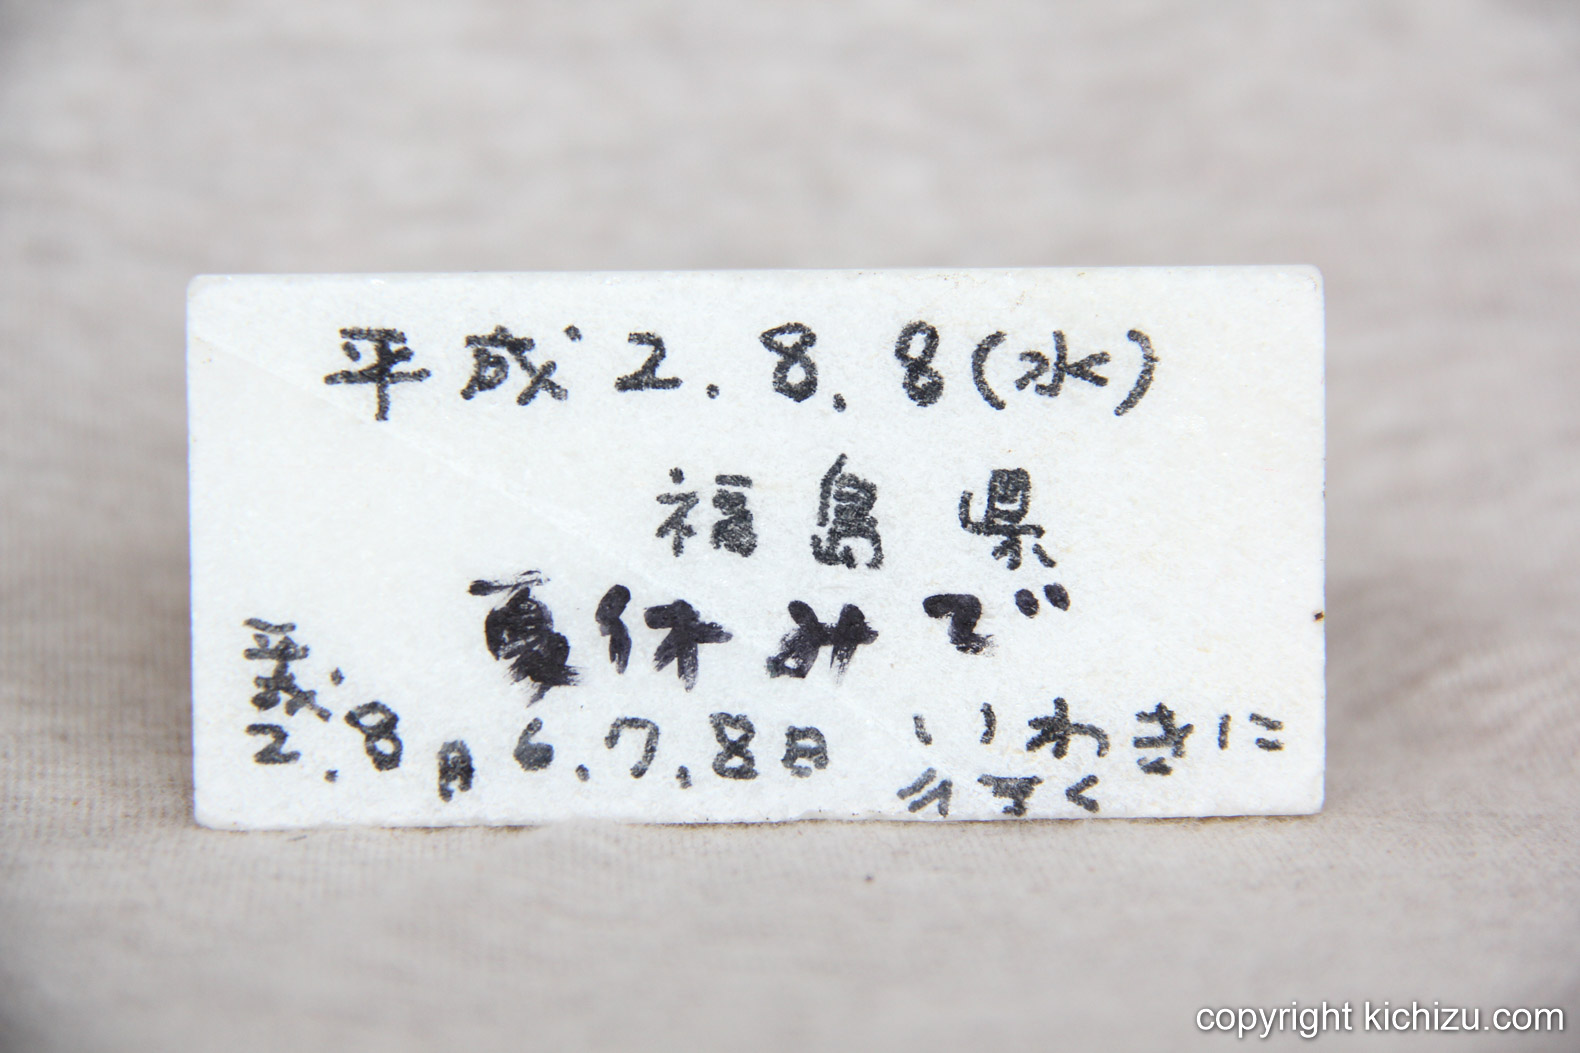 平成2.8.8(水)
福島県
夏休みで
平成2.8月6.7.8日 いわきに
行く
copyright kichizu.com